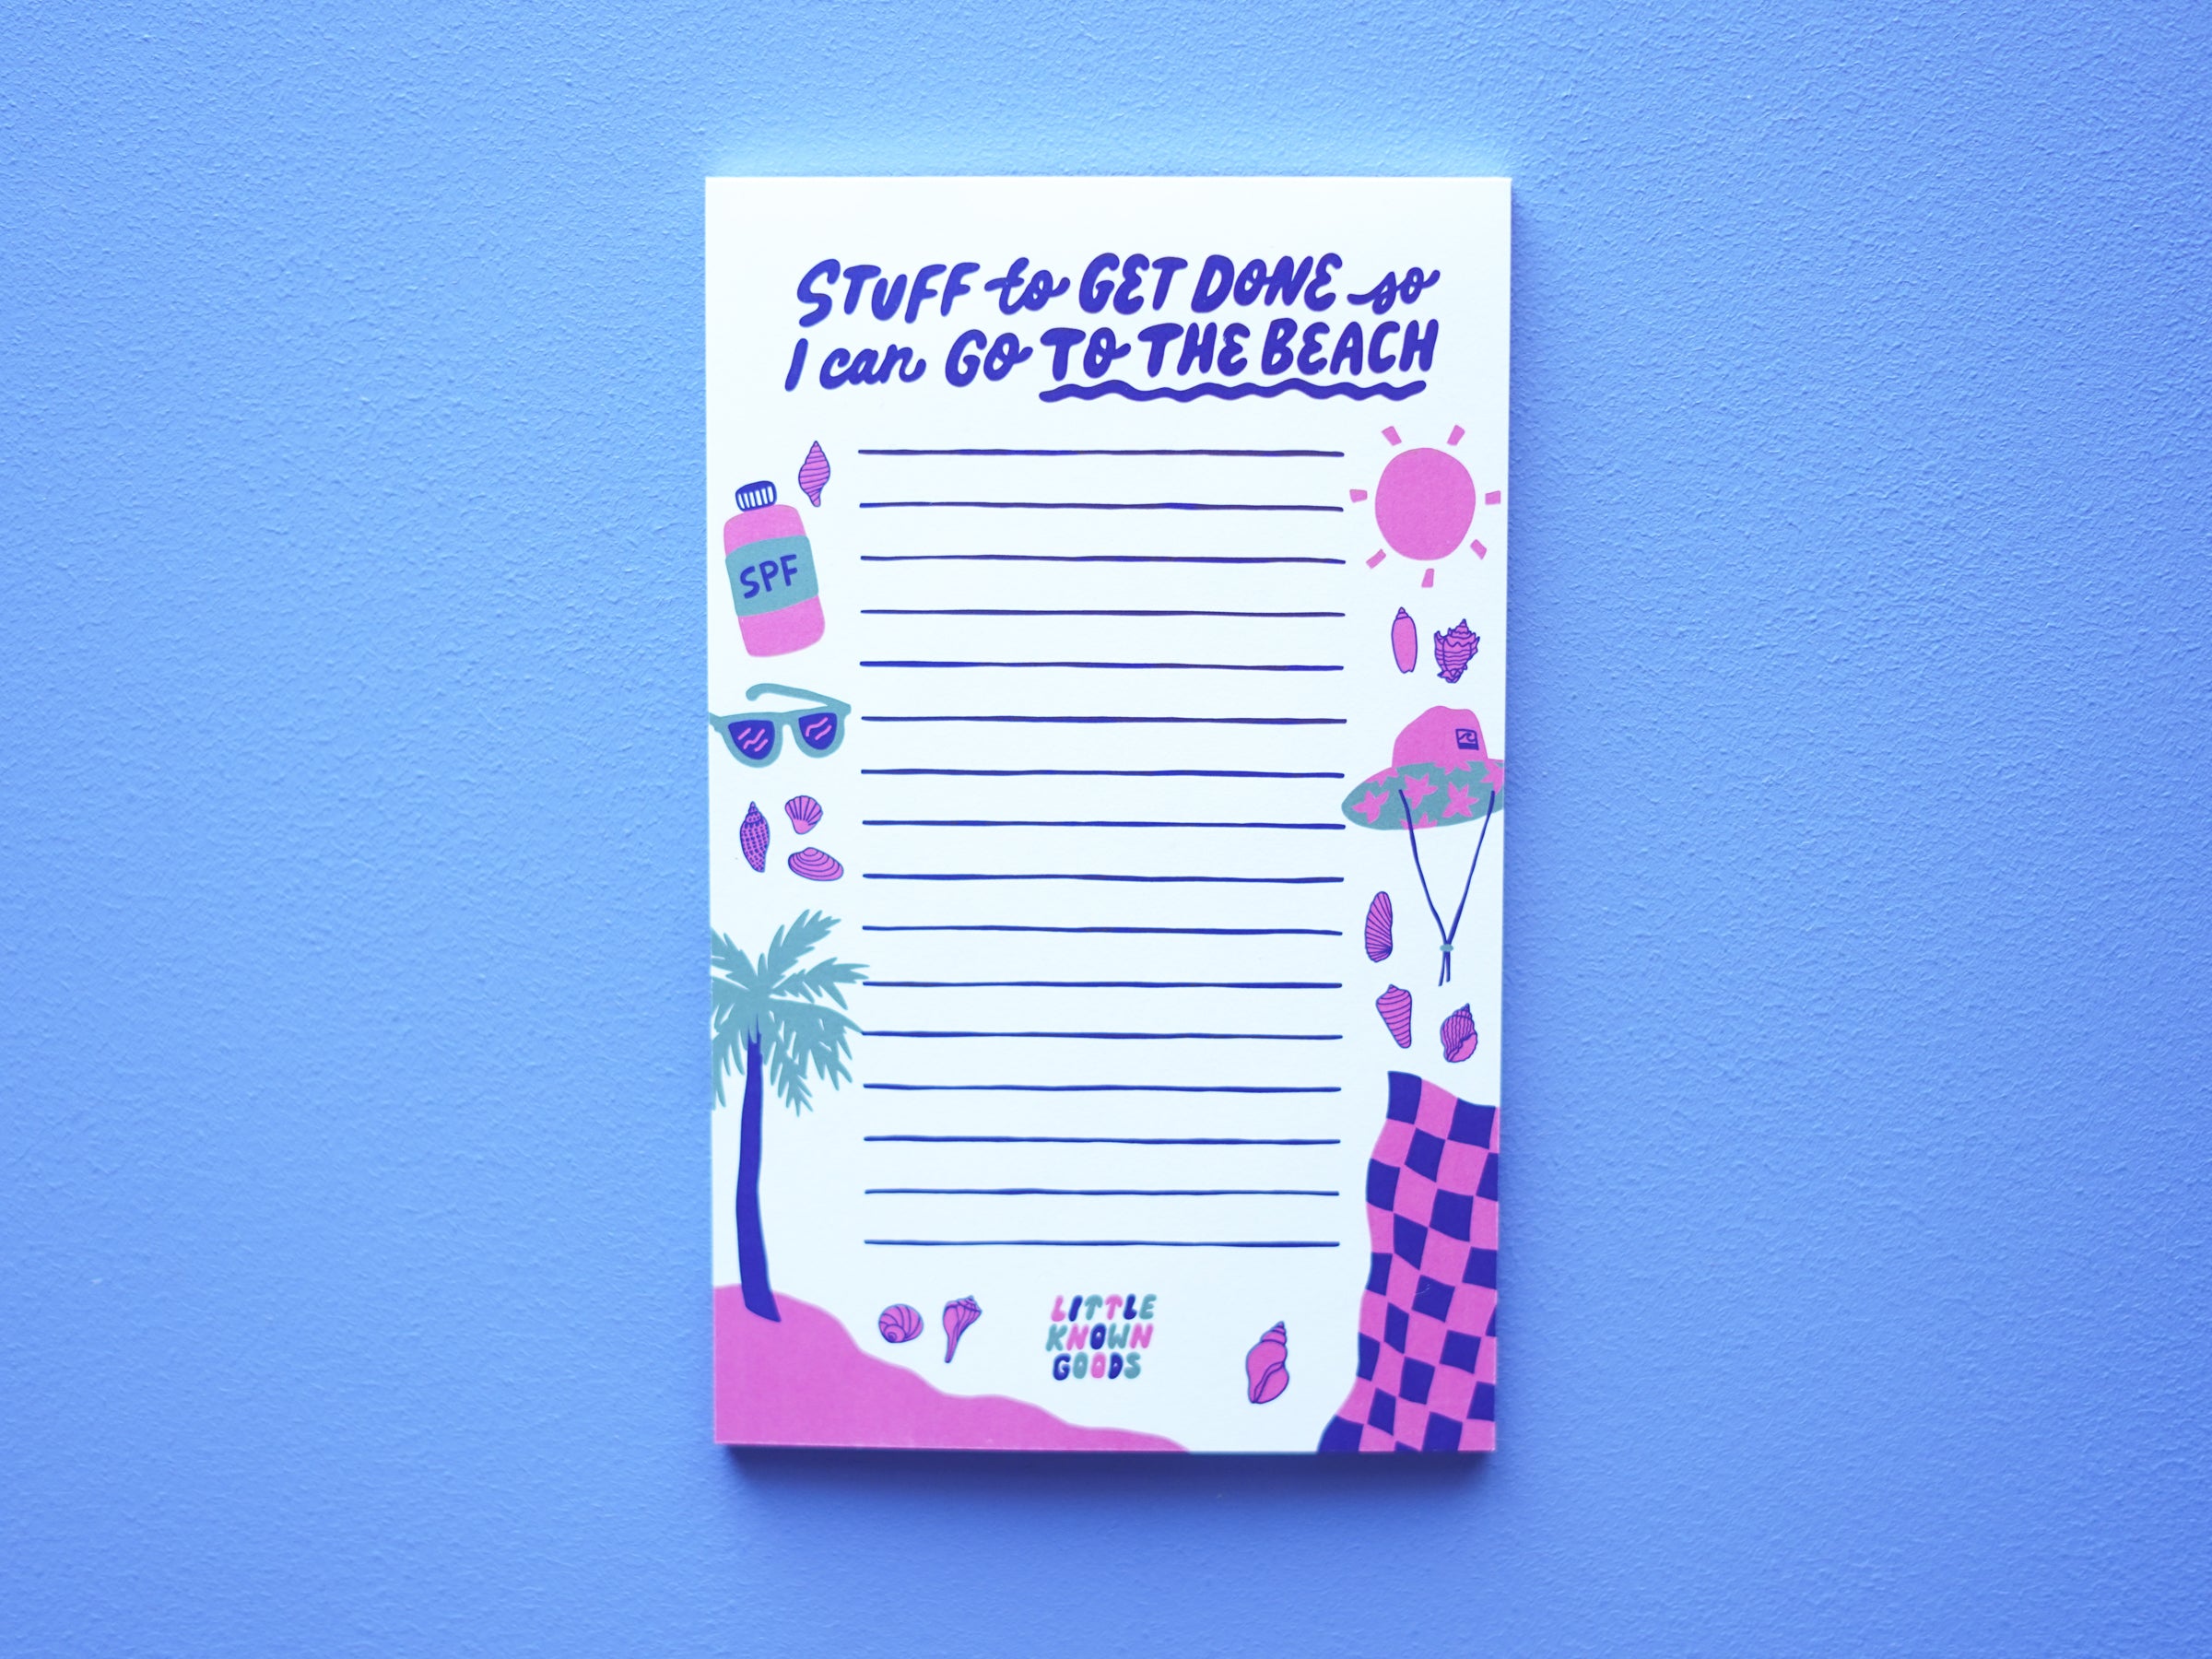 STUFF to GET DONE so
I can GO TO THE BEACH
SPF
LITTLE
KNOWN
GOODS